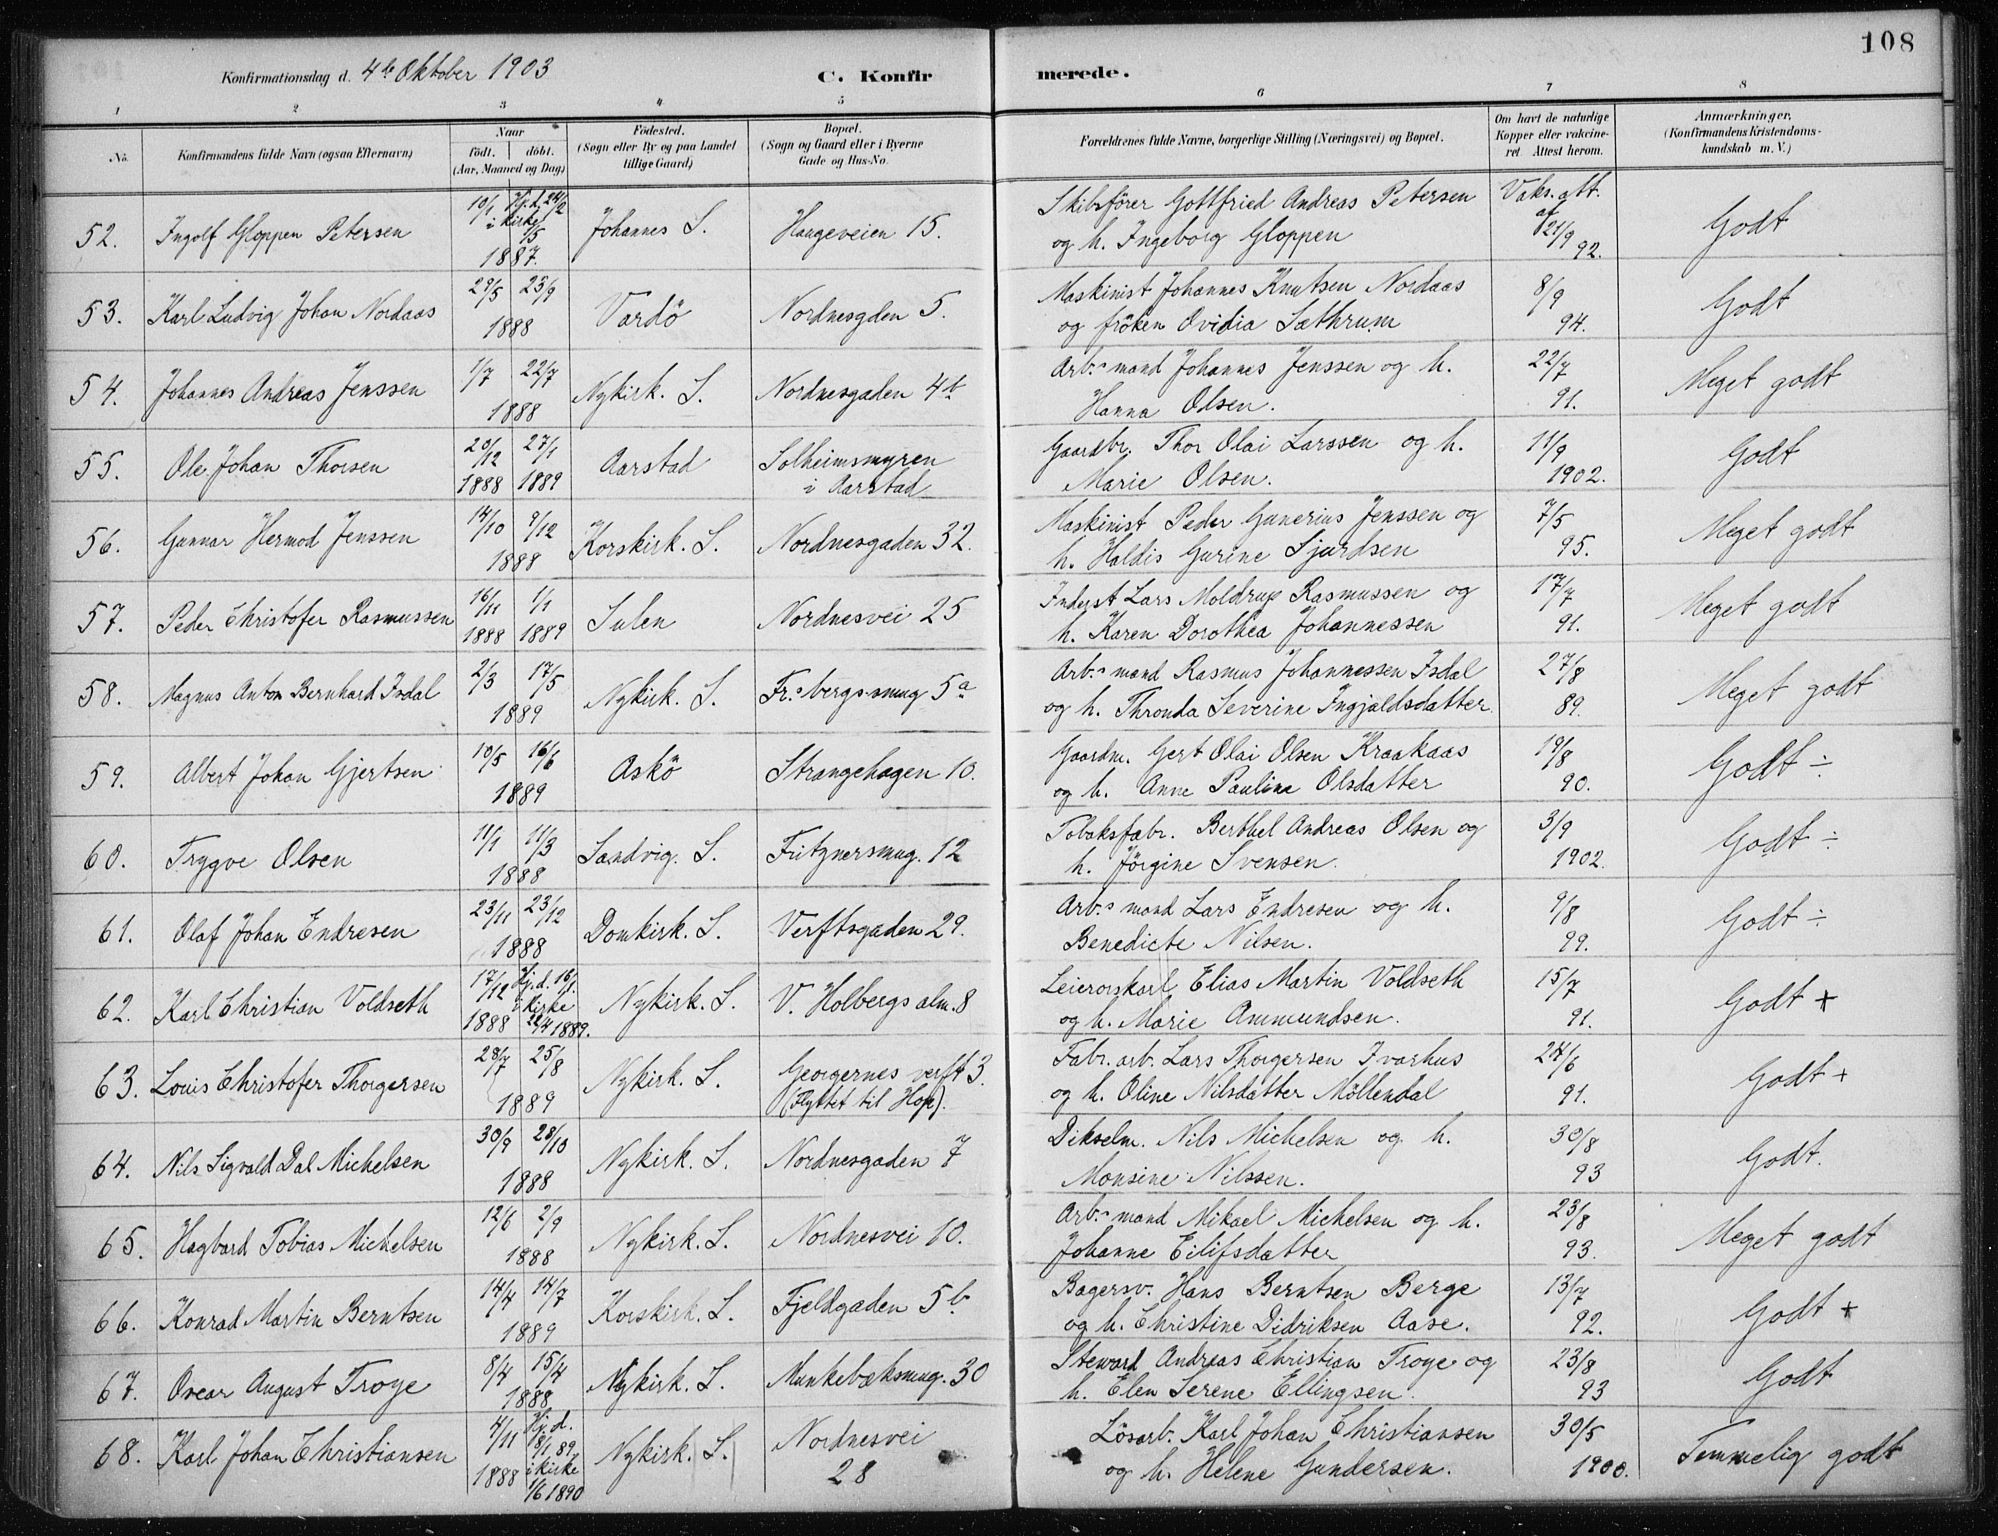 108
Konfirmationsdag d. 4de Oktober 1903 C. Konfirmerede.
1 2 3 4 5 6 7 8
No. Konfirmandens fulde Navn (ogsaa Efternavn) Naar födt. döbt. (Aar, Maaned og Dag) Födested. (Sogn eller By og paa Landet tillige Gaard) Bopæl. (Sogn og Gaard eller i Byerne Gade og Hus-No. Forældrenes fulde Navne, borgerlige Stilling (Næringsvei) og Bopæl. Om havt de naturlige Kopper eller vakcineret. Attest herom. Anmærkninger, (Konfirmandens Kristendomskundskab m. V.)
52. Ingolf Gloppen Petersen 10/1 Hj.d. 24/2 i kirke /5 1887. Johannes S. Haugeveien 15. Skibsförer Gottfried Andreas Petersen og h. Ingeborg Gloppen Vaks. att. af 21/9 92. Godt
53. Karl Ludvig Johan Nordaas 29/5 23/9 1888 Vardö Nordnesgden 5. Maskinist Johannes Knutsen Nordaas og fröken Ovidia Sæthrum 8/9 94. Godt
54. Johannes Andreas Jenssen 1/7 22/7 1888 Nykirk. S. Nordnesgaden 4b Arb.s mand Johannes Jenssen og h. Hanna Olsen. 22/7 91. Meget godt
55. Ole Johan Thorsen 20/12 1888 27/1 1889 Aarstad Solheimsmyren i Aarstad Gaardbr. Thor Olai Larssen og h. Marie Olsen. 11/9 1902. Godt
56. Gunnar Hermod Jenssen 14/10 9/12 1888 Korskirk. S. Nordnesgaden 32. Maskinist Peder Gunerius Jenssen og h. Haldis Gurine Sjurdsen 7/5 95. Meget godt
57. Peder Christofer Rasmussen 16/11 1888 1/1 1889 Sulen Nordnesvei 25 Inderst Lars Moldrup Rasmussen og h. Karen Dorothea Johannessen 17/7 91. Meget godt
58. Magnus Anton Bernhard Isdal 2/3 17/5 1889 Nykirk. S. Fr.sbergssmug 5a Arb.s mand Rasmus Johannessen Isdal og h. Thronda Severine Ingjaldsdatter 27/8 89. Meget godt
59. Albert Johan Gjertsen 10/5 16/6 1889 Askö Strangehagen 10. Gaardm. Gert Olai Olsen Kraakaas og h. Anne Paulina Olsdatter 19/8 90. Godt ÷
60. Trygve Olsen 11/1 11/3 1888 Sandvig. S. Fritznersmug. 12 Tobaksfabr. Berthel Andreas Olsen og h. Jörgine Svensen. 3/9 1902. Godt ÷
61. Olaf Johan Endresen 23/11 23/12 1888 Domkirk. S. Verftsgaden 29. Arb.s mand Lars Endresen og h. Benedicte Nilsen. 9/8 99. Godt ÷
62. Karl Christian Voldseth 17/12 1888 Hj.d. 16/1. i kirke 22/4 1889. Nykirk. S. V. Holbergs alm. 8 Leierorskarl Elias Martin Voldseth og h. Marie Ammundsen. 15/7 91. Godt +
63. Louis Christofer Thorgersen 28/7 25/8 1889 Nykirk. S. Georgernes verft 3. (Flyttet til Hop). Fabr. arb. Lars Thorgersen Ivarhus og h. Oline Nilsdatter Möllendal 24/6 91. Godt +
64. Nils Sigvald Dal Michelsen 30/9 28/10 1888 Nykirk. S. Nordnesgaden 7 Dikselm. Nils Michelsen og h. Monsine Nilssen. 30/8 93 Godt.
65. Hagbard Tobias Michelsen 12/6 2/9 1888 Nykirk. S. Nordnesvei 10. Arb.s mand Mikael Michelsen og h. Johanne Eilifsdatter 23/8 93. Meget godt
66. Konrad Martin Berntsen 14/4 14/7 1889 Korskirk. S. Fjeldgaden 5b Bagersv. Hans Berntsen Berge og h. Christine Didriksen Aase. 13/7 92. Godt +
67. Oscar August Troye 8/4 15/4 1888 Nykirk. S. Munkebæksmug. 30 Steward Andreas Christian Troye og h. Elen Serene Ellingsen. 23/8 93 Godt
68. Karl Johan Christiansen 4/11 1888 Hj.d. 18/1 89, i kirke 1/6 1890 Nykirk. S. Nordnesvei 28 Lösarb. Karl Johan Christiansen og h. Helene Gundersen. 30/5 1900. Temmelig godt